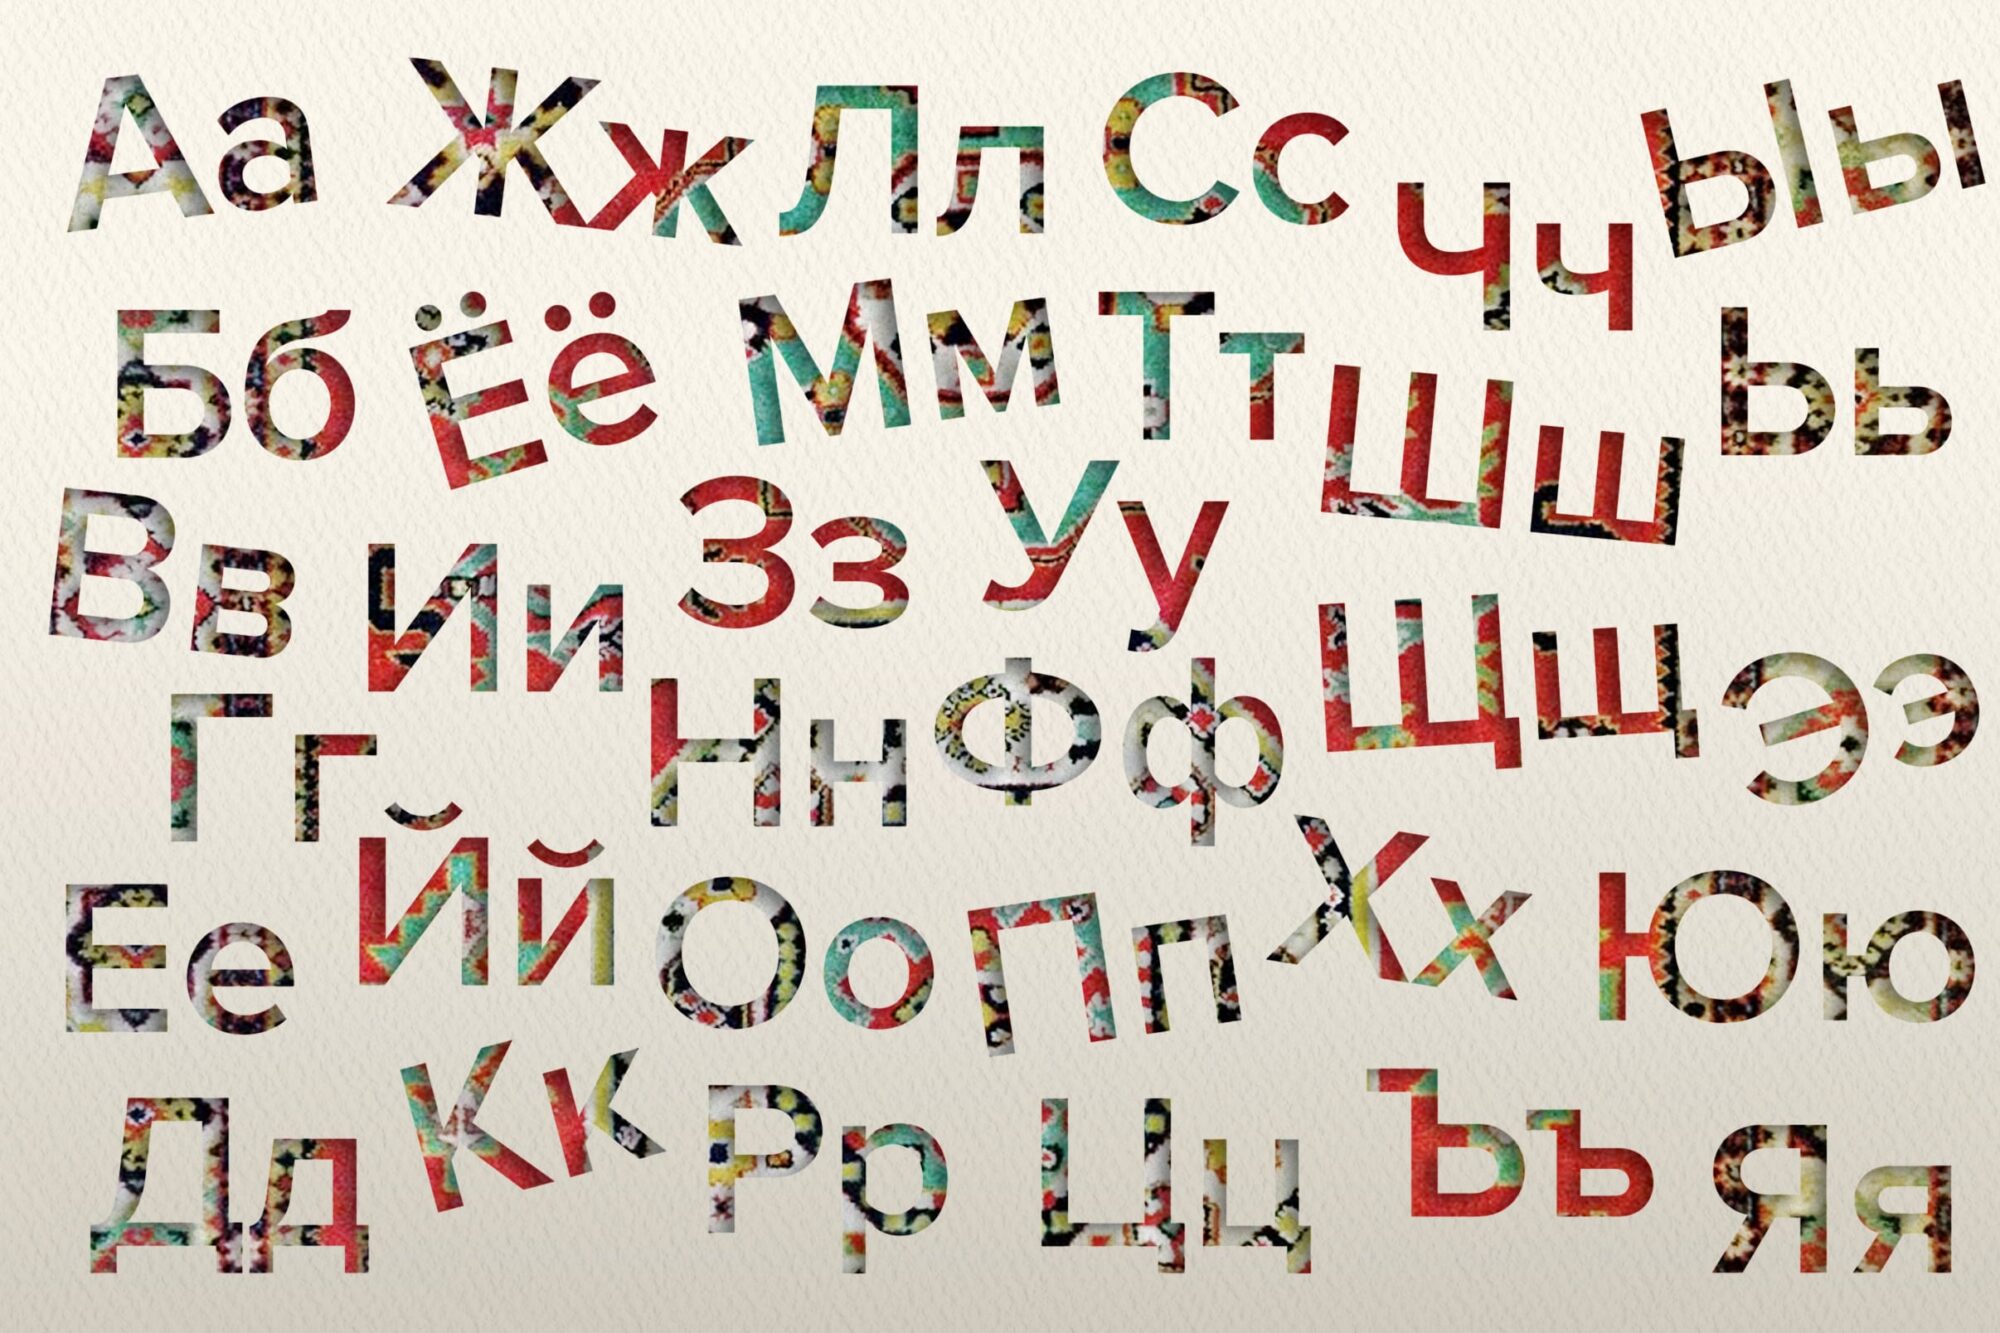 Аа
Бб
Вв
Гг
Ее
Дд
Жж
Ёё
Ии
Йй
Кк
Лл
Мм
Зз
Нн
Оо
Рр
Сс
Тт
Уу
Фф
Пп
Цц
Чч
Шш
Щщ
Хх
Ъъ
Ыы
Ьь
Ээ
Юю
Яя